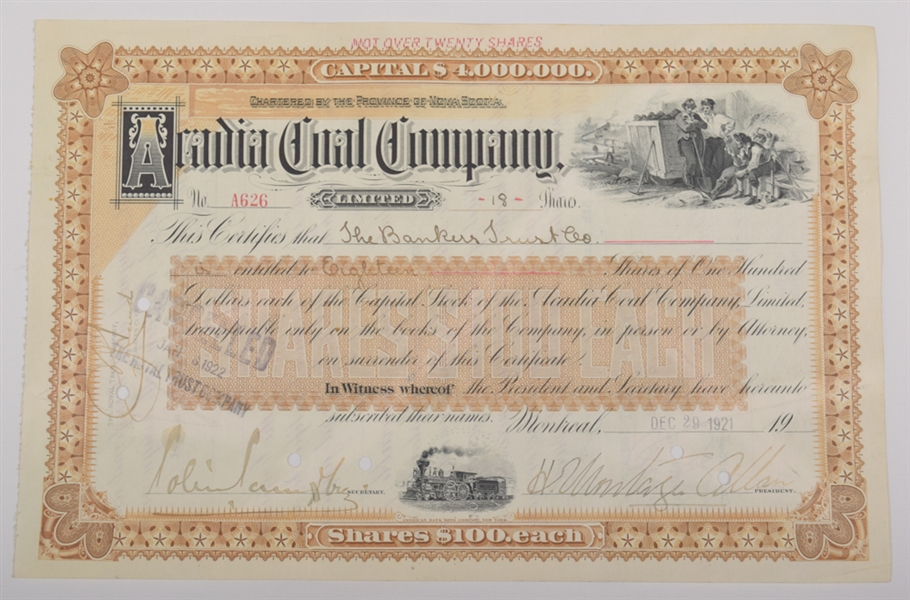 NOT OVER TWENTY SHARES
CAPITAL $4,000,000.
CHARTERED BY THE PROVINCE OF NOVA SCOTIA
Acadia Coal Company,
No. A626 LIMITED -18- Shares.
This Certifies that The Bankers Trust Co.
is entitled to Eighteen Shares of One Hundred
Dollars each of the Capital Stock of the Acadia Coal Company, Limited,
transferable only on the books of the Company, in person or by Attorney,
on surrender of this Certificate.
In Witness whereof the President and Secretary have hereunto
subscribed their names. Montreal, DEC 29 1921 19
SHARES $100 EACH
CANCELLED
1922
THE ROYAL TRUST COMPANY
SECRETARY.
H. Montagu Allan
PRESIDENT.
AMERICAN BANK NOTE COMPANY, NEW YORK.
Shares $100.each